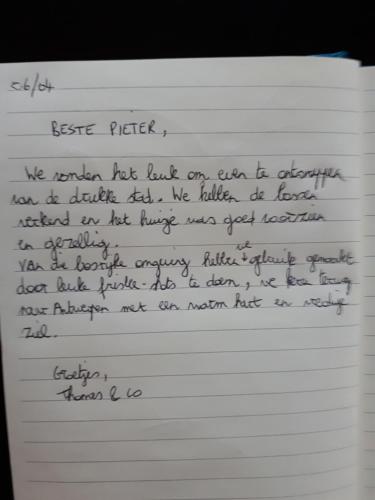 06/04
BESTE PIETER,
We vonden het leuk om even te ontsnappen
van de drukke stad. We hebben de bossen
verkend en het huisje was goed voorzien
en gezellig.
Van die bosrijke omgeving hebben we gebruik gemaakt
door leuke frisbee-shots te doen, we keren terug
naar Antwerpen met een warm hart en vredige
ziel.
Groetjes,
Thomas & co